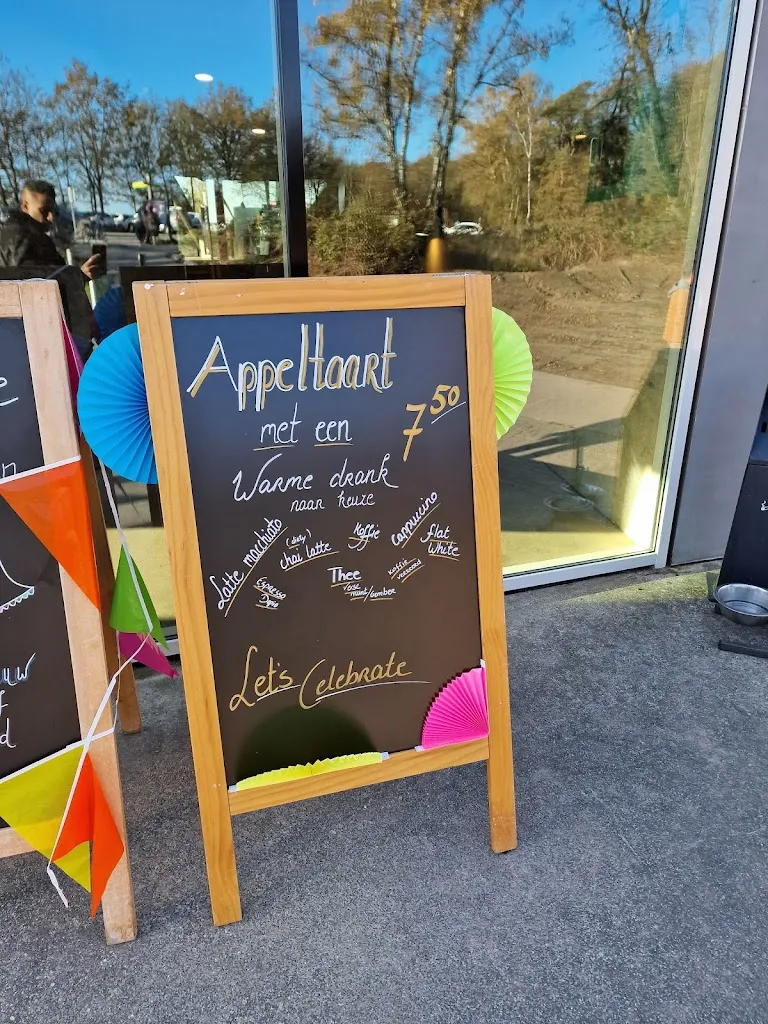 Appeltaart
met een
7 50
Warme drank
naar keuze
Latte macchiato
(dirty)
chai latte
koffie
cappuccino
flat
white
Espresso
Thee
verse
munt/Gember
koffie
verkeerd
Let's Celebrate
e
n
uw
f
d